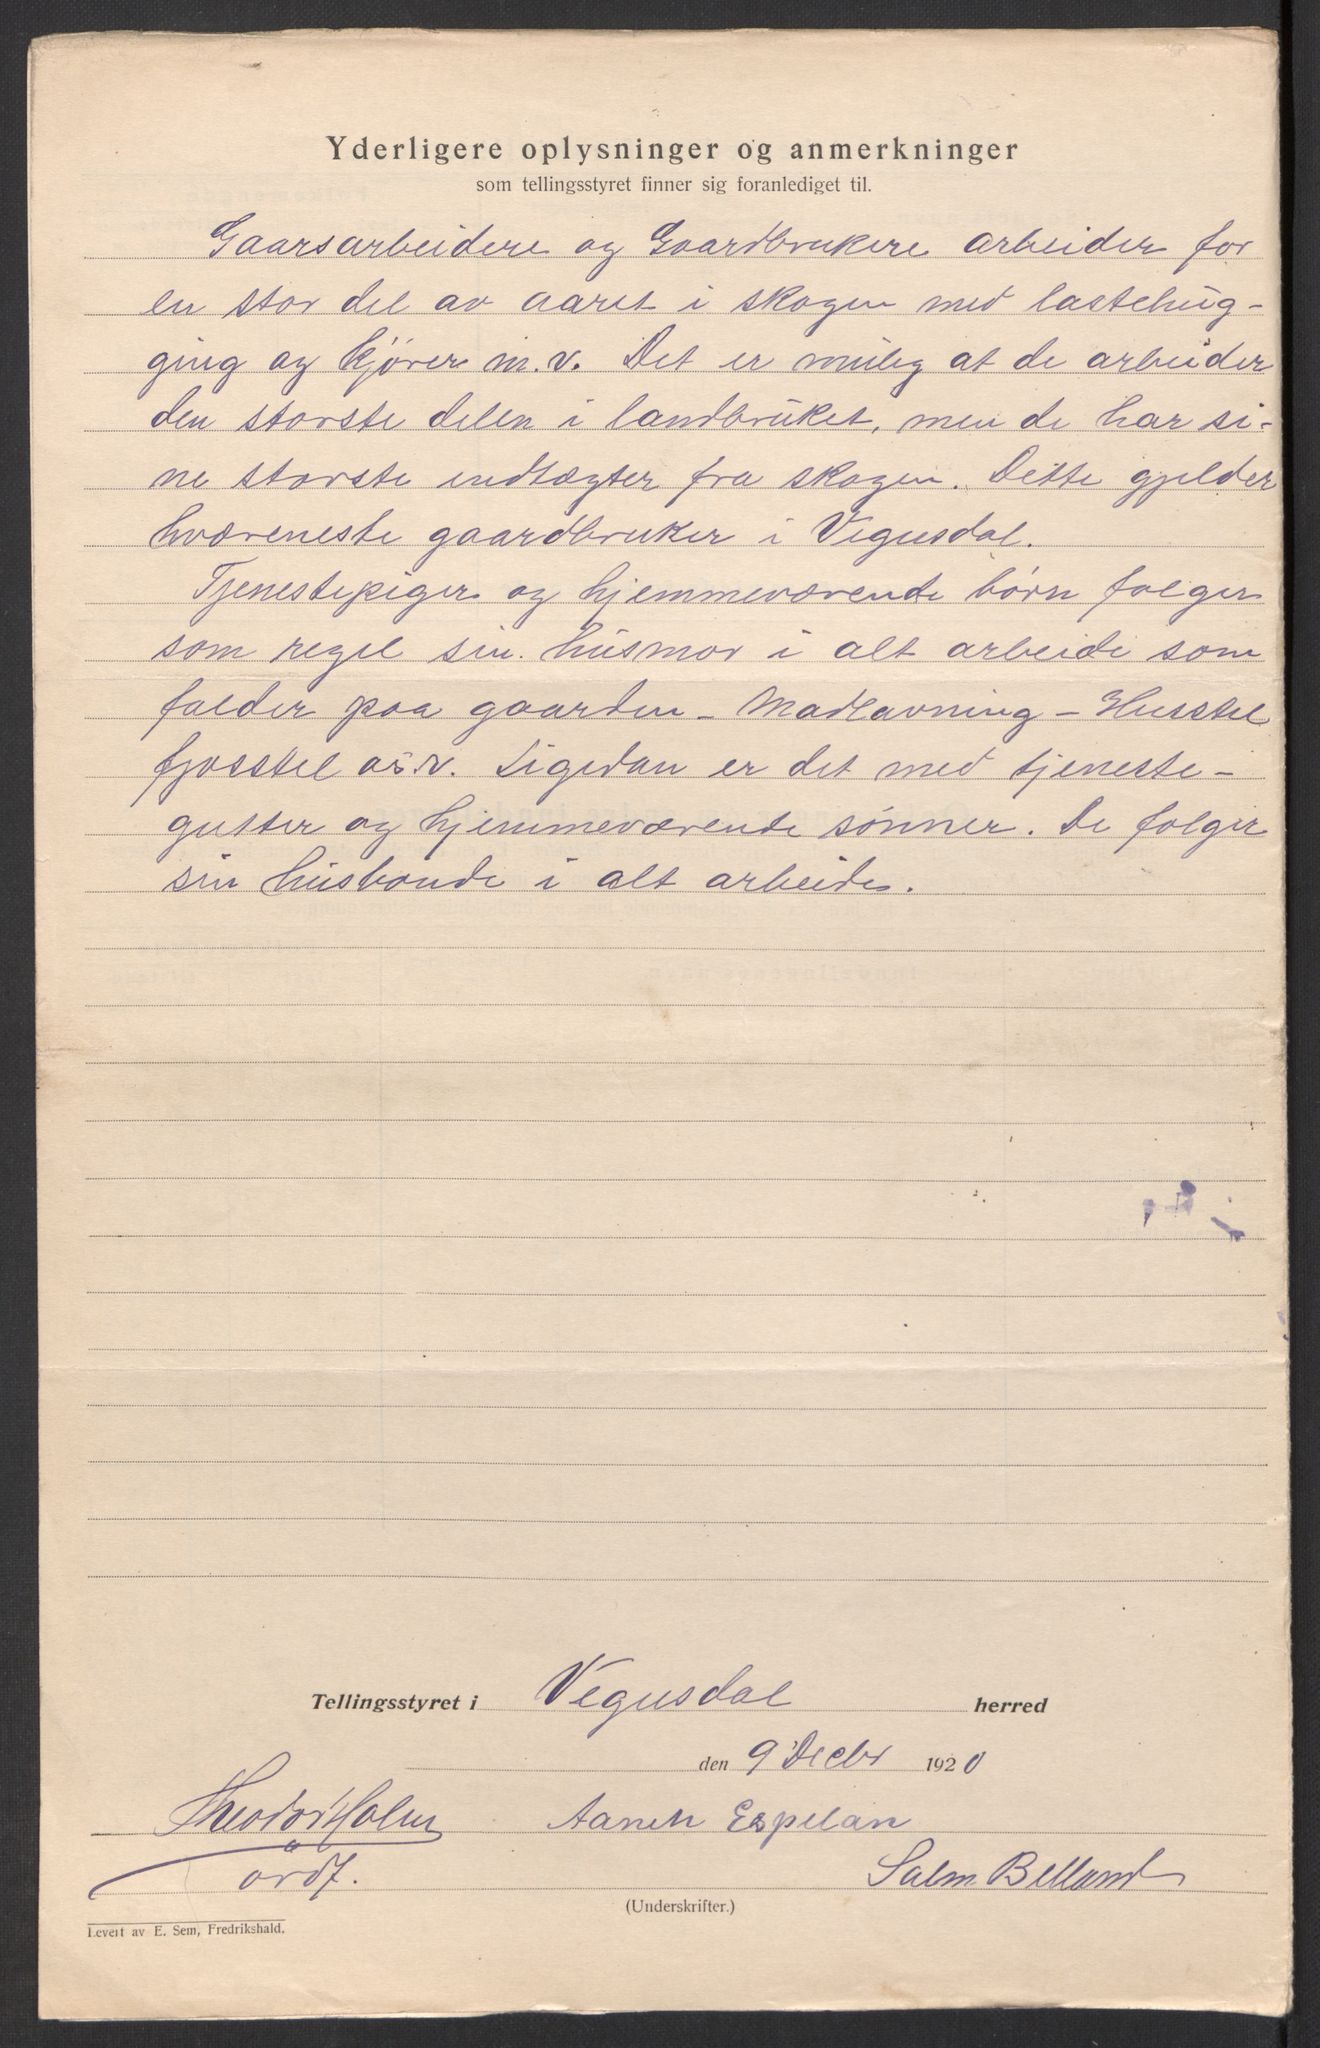 Yderligere oplysninger og anmerkninger
som tellingsstyret finner sig foranlediget til.
Gaarsarbeidere og Gaardbrukere arbeider for
en stor del av aaret i skogen med lastehug-
ging og kjører m.v. Det er mulig at de arbeider
den største delen i landbruket, men de har si-
ne største indtægter fra skogen. Dette gjelder
hværeneste gaardbruker i Vegusdal.
Tjenestepiger og hjemmeværende børn følger
som regel sin husmor i alt arbeide som
falder paa gaarden - Madlavning - Husstel
fjosstel o.s.v. Ligedan er det med tjeneste-
gutter og hjemmeværende sønner. De følger
sin husbonde i alt arbeide.
Tellingsstyret i Vegusdal herred
den 9 Decbr 1920
Theodor Holm Aanen Espelan
ordf. Salm. Belland
(Underskrifter.)
Levert av E. Sem, Fredrikshald.